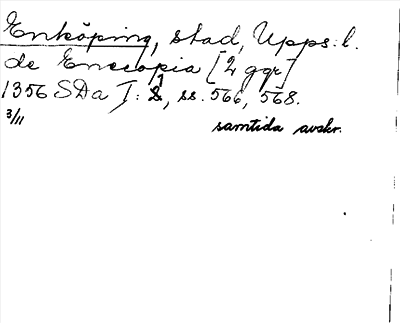 Enköping, stad, Upps. l.
de Enecopia [2 ggr]
1356 SDa I: 1, ss. 566, 568.
3/11
samtida avskr.